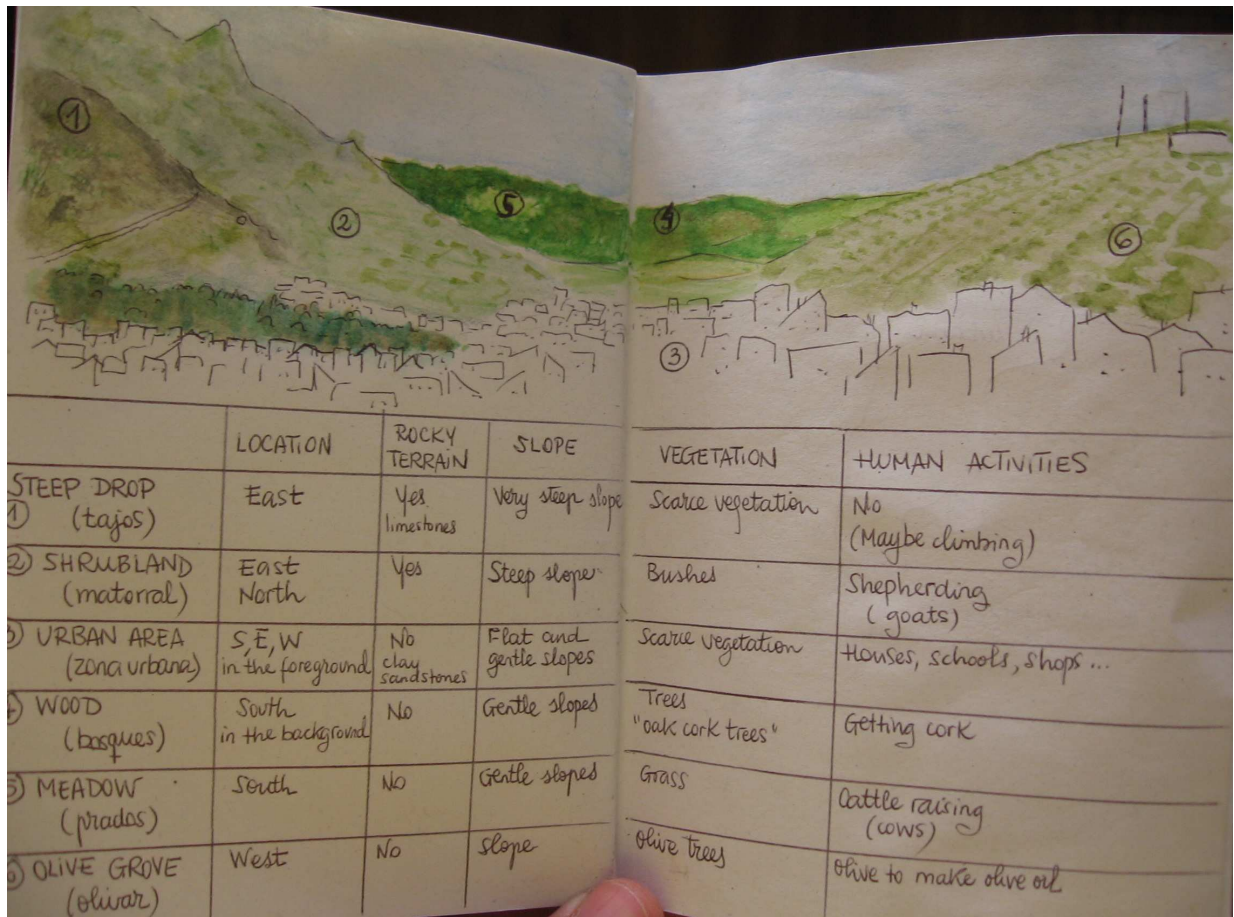 1
2
5
4
6
3
LOCATION
ROCKY
TERRAIN
SLOPE
VEGETATION
HUMAN ACTIVITIES
STEEP DROP
1 (tajos)
East
Yes
limestones
Very steep slope
Scarce vegetation
No
(Maybe climbing)
2 SHRUBLAND
(matorral)
East
North
Yes
Steep slope
Bushes
Shepherding
(goats)
3 URBAN AREA
(zona urbana)
S, E, W
in the foreground
No
clay
sandstones
Flat and
gentle slopes
Scarce vegetation
Houses, schools, shops ...
4 WOOD
(bosques)
South
in the background
No
Gentle slopes
Trees
"oak cork trees"
Getting cork
5 MEADOW
(prados)
South
No
Gentle slopes
Grass
Cattle raising
(cows)
6 OLIVE GROVE
(olivar)
West
No
slope
olive trees
olive to make olive oil